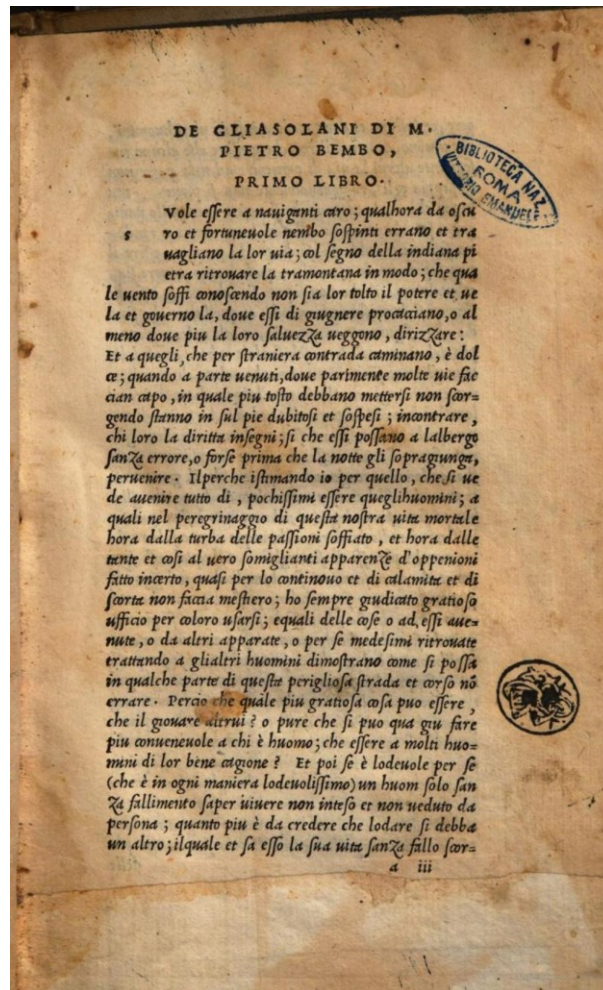 DE GLIASOLANI DI M.
PIETRO BEMBO,
PRIMO LIBRO.
BIBLIOTECA NAZ.
ROMA
VITTORIO EMANUELE
Vole eſſere a nauiganti caro; qualhora da oſcu
s ro et fortuneuole nembo ſoſpinti errano et tra
uagliano la lor uia; col ſegno della indiana pi
etra ritrouare la tramontana in modo; che qua
le uento ſoffi conoſcendo non ſia lor tolto il potere et ue
la et gouerno la, doue eſſi di giugnere procacciano, o al
meno doue piu la loro ſaluezza ueggono, dirizzare:
Et a quegli, che per ſtraniera contrada caminano, è dol
ce; quando a parte uenuti, doue parimente molte uie fac
cian capo, in quale piu toſto debbano metterſi non ſcor-
gendo ſtanno in ſul pie dubitoſi et ſoſpeſi; incontrare,
chi loro la diritta inſegni; ſi che eſſi poſſano a lalbergo
ſanza errore, o forſe prima che la notte gli ſopragiunga,
peruenire. Ilperche iſtimando io per quello, che ſi ue
de auenire tutto di, pochiſſimi eſſere queglihuomini; a
quali nel peregrinaggio di queſta noſtra uita mortale
hora dalla turba delle paſſioni ſoffiato, et hora dalle
tante et coſi al uero ſomiglianti apparenze d'oppenioni
fatto incerto, quaſi per lo continouo et di calamita et di
ſcorta non faccia meſtiero; ho ſempre giudicato gratioſo
ufficio per coloro uſarſi; equali delle coſe o ad eſſi aue=
nute, o da altri apparate, o per ſe medeſimi ritrouate
trattando a glialtri huomini dimoſtrano come ſi poſſa
in qualche parte di queſta periglioſa ſtrada et corſo nō
errare. Percio che quale piu gratioſa coſa puo eſſere,
che il giouare altrui? o pure che ſi puo qua giu fare
piu conueneuole a chi è huomo; che eſſere a molti huo=
mini di lor bene cagione? Et poi ſe è lodeuole per ſe
(che è in ogni maniera lodeuoliſſimo) un huom ſolo ſan
za fallimento ſaper uiuere non inteſo et non ueduto da
perſona; quanto piu è da credere che lodare ſi debba
un altro; ilquale et ſa eſſo la ſua uita ſanza fallo ſcor=
a iii